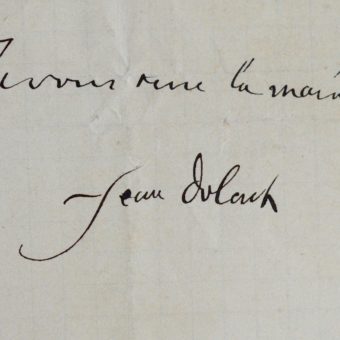 Je vous serre la main
Jean Dolent